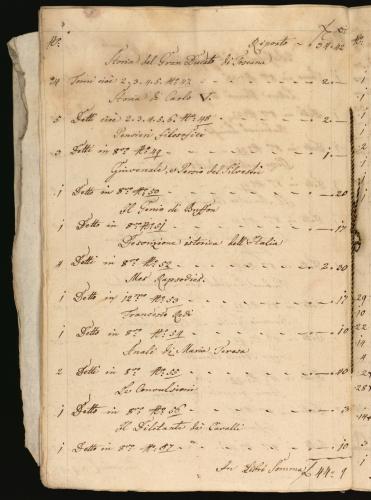 No. Riporto - £ 34.42
Storia del Gran Ducato di Toscana
24 Tomi cioè 2. 3. 4. 5. No. 47 - 2. -
Storia di Carlo V.
5 Detti cioè 2. 3. 4. 5. 6. No. 48 - 2. -
Pensieri Filosofici
3 Detti in 8vo No. 49 - 1. -
Giuvenale, e Persio del Silvestri
1 Detto in 8vo No. 50 - 20
Il Genio di Buffon
1 Detto in 8vo No. 51 - 17
Descrizione istorica dell'Italia
4 Detti in 8vo No. 52 - 2. 20
Mes Rapsodies.
1 Detto in 12mo No. 53 - 17
Francesco Redi
1 Detto in 8vo No. 54 - 10
Anali di Maria Teresa
2 Detti in 8vo No. 55 - 40
Le Convulsioni
1 Detto in 8vo No. 56 - 3
Il Dilitante de Cavalli
1 Detto in 8vo No. 57 - 10
In Libri Somma £ 44. 9